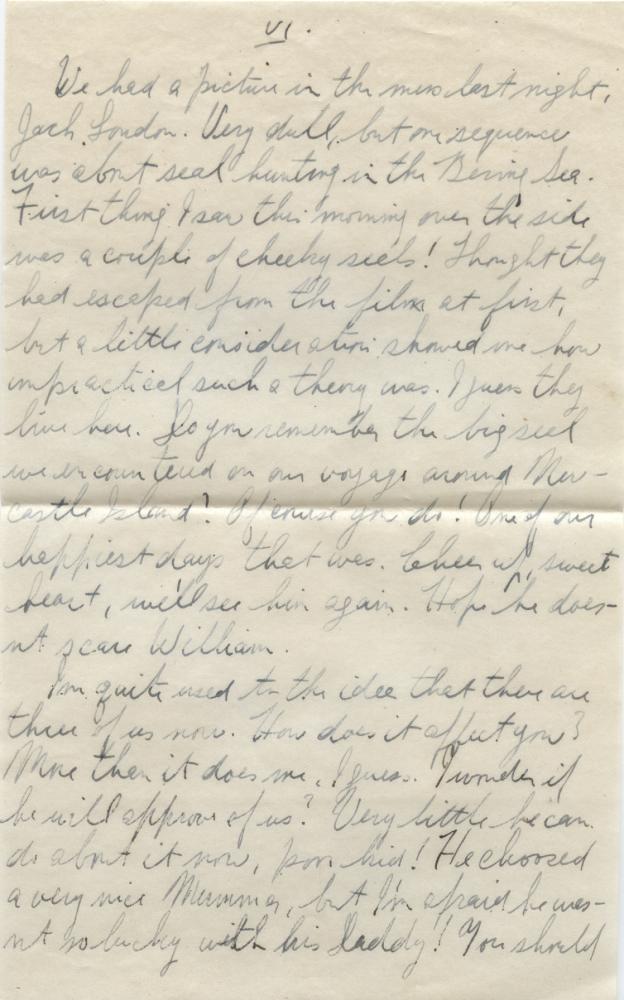 VI.
We had a picture in the mess last night,
Jack London. Very dull, but one sequence
was about seal hunting in the Bering Sea.
First thing I saw this morning over the side
was a couple of cheeky seals! Thought they
had escaped from the film at first,
but a little consideration showed me how
impractical such a theory was. I guess they
live here. Do you remember the big seal
we encountered on our voyage around New-
castle Island? Of course you do! One of our
happiest days that was. Cheer up, sweet
heart, we'll see him again. Hope he does-
nt scare William.
I'm quite used to the idea that there are
three of us now. How does it affect you?
More than it does me, I guess. I wonder if
he will approve of us? Very little he can
do about it now, poor kid! He choosed
a very nice Mumma, but I'm afraid he was-
nt so lucky with his Daddy! You should